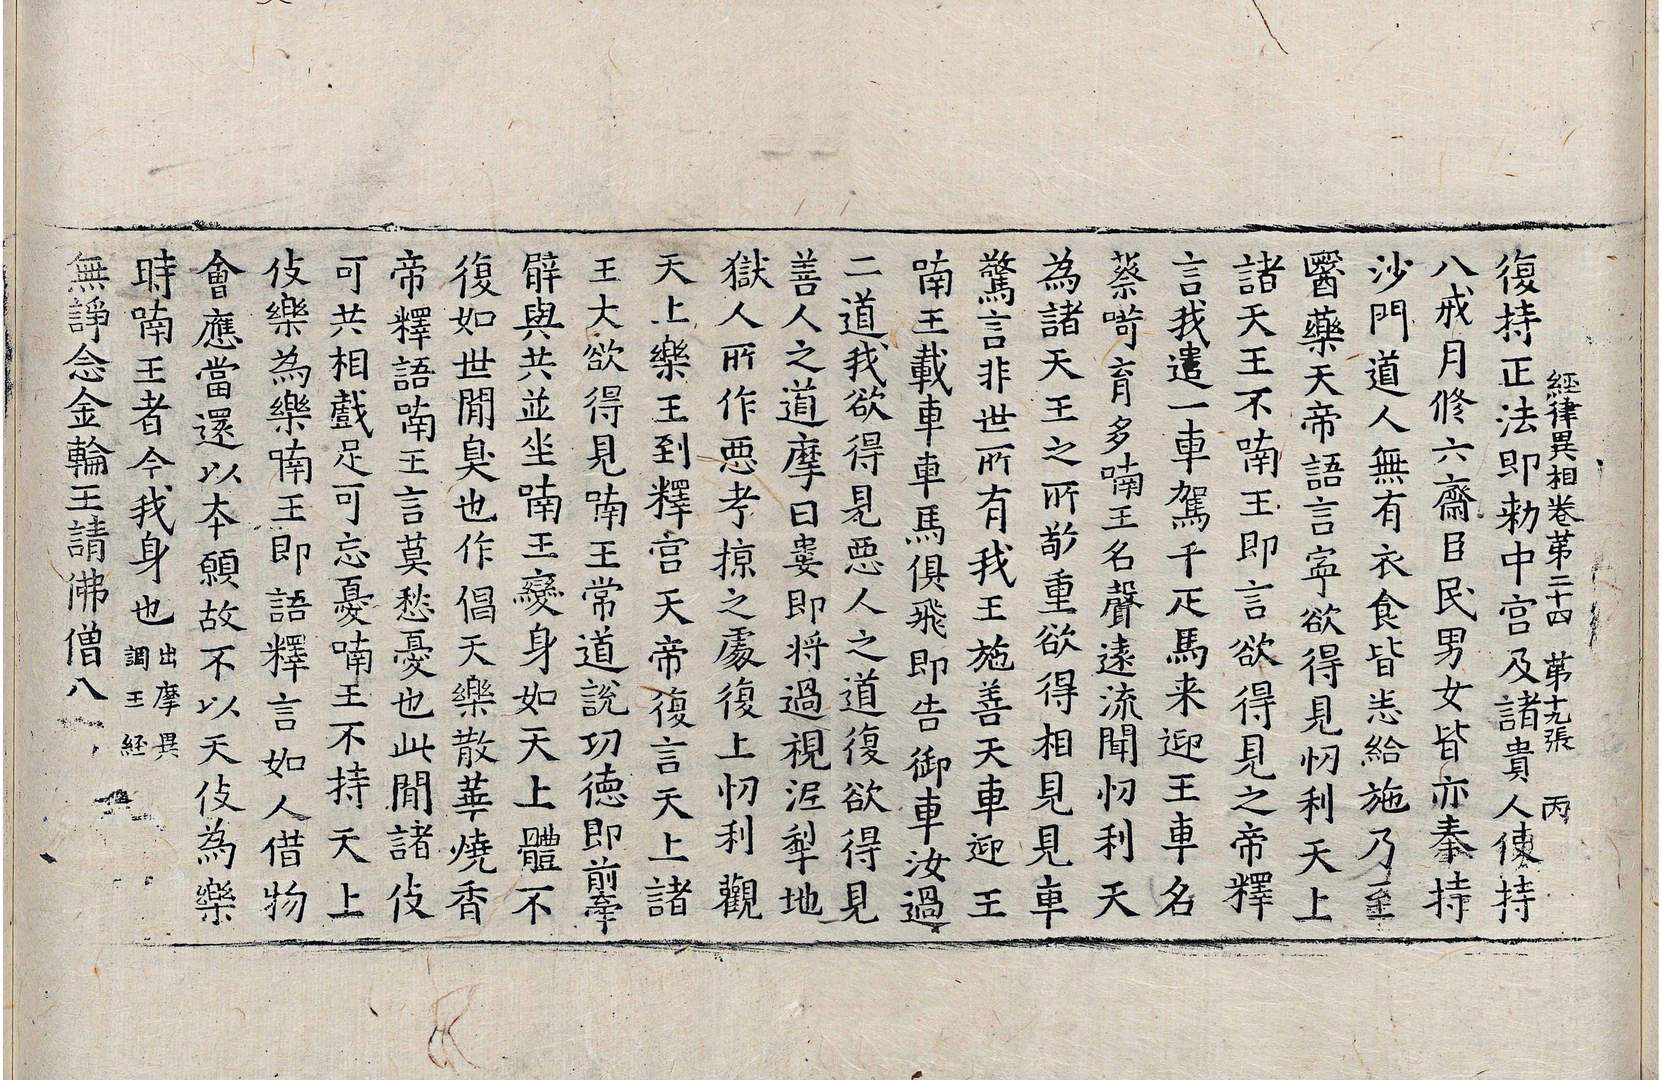 經律異相卷第二十四 第十九張 丙
復持正法即勑中宮及諸貴人使持
八戒月修六齋臣民男女皆亦奉持
沙門道人無有衣食皆悉給施乃至
醫藥天帝語言寧欲得見忉利天上
諸天王不喃王即言欲得見之帝釋
言我遣一車駕千疋馬来迎王車名
蔡㗸育多喃王名聲遠流聞忉利天
為諸天王之所敬重欲得相見見車
驚言非世所有我王施善天車迎王
喃王載車車馬俱飛即告御車汝過
二道我欲得見惡人之道復欲得見
善人之道摩曰婁即將過視泥犁地
獄人所作惡考掠之處復上忉利觀
天上樂王到釋宮天帝復言天上諸
王大欲得見喃王常道說功德即前牽
臂與共並坐喃王變身如天上體不
復如世閒臭也作倡天樂散華燒香
帝釋語喃王言莫愁憂也此閒諸伎
可共相戲足可忘憂喃王不持天上
伎樂為樂喃王即語釋言如人借物
會應當還以本願故不以天伎為樂
時喃王者今我身也 出摩異調王經
無諍念金輪王請佛僧八